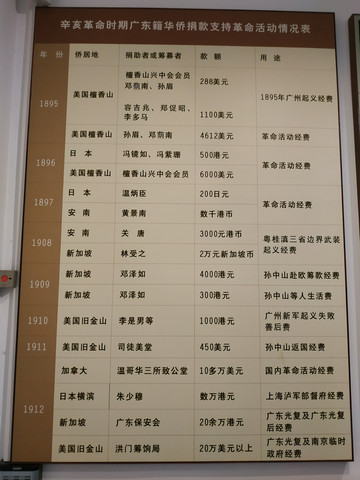 辛亥革命时期广东籍华侨捐款支持革命活动情况表
年 份 侨居地 捐助者或筹募者 款 额 用 途
1895 美国檀香山 檀香山兴中会会员 288美元 1895年广州起义经费
邓荫南、孙眉
容吉兆、郑促昭、 1100美元
李多马
美国檀香山 孙眉、邓荫南 4612美元 革命活动经费
1896 日 本 冯镜如、冯紫珊 500港元 革命活动经费
美国檀香山 檀香山兴中会会员 6000美元
1897 日 本 温炳臣 200日元 革命活动经费
安 南 黄景南 数千港币
1908 安 南 关 唐 3000元港币 粤桂滇三省边界武装
起义经费
新加坡 林受之 2万元新加坡币
1909 新加坡 邓泽如 4000港元 孙中山赴欧筹款经费
新加坡 邓泽如 300港元 孙中山等人生活费
1910 美国旧金山 李是男等 1000港元 广州新军起义失败
善后费
1911 美国旧金山 司徒美堂 450美元 孙中山返国经费
1912 加拿大 温哥华三所致公堂 10多万美元 国内革命活动经费
日本横滨 朱少穆 数万港元 上海沪军都督府经费
新加坡 广东保安会 20余万元 广东光复及广东光复
后经费
美国旧金山 洪门筹饷局 20万美元以上 广东光复及南京临时
政府经费